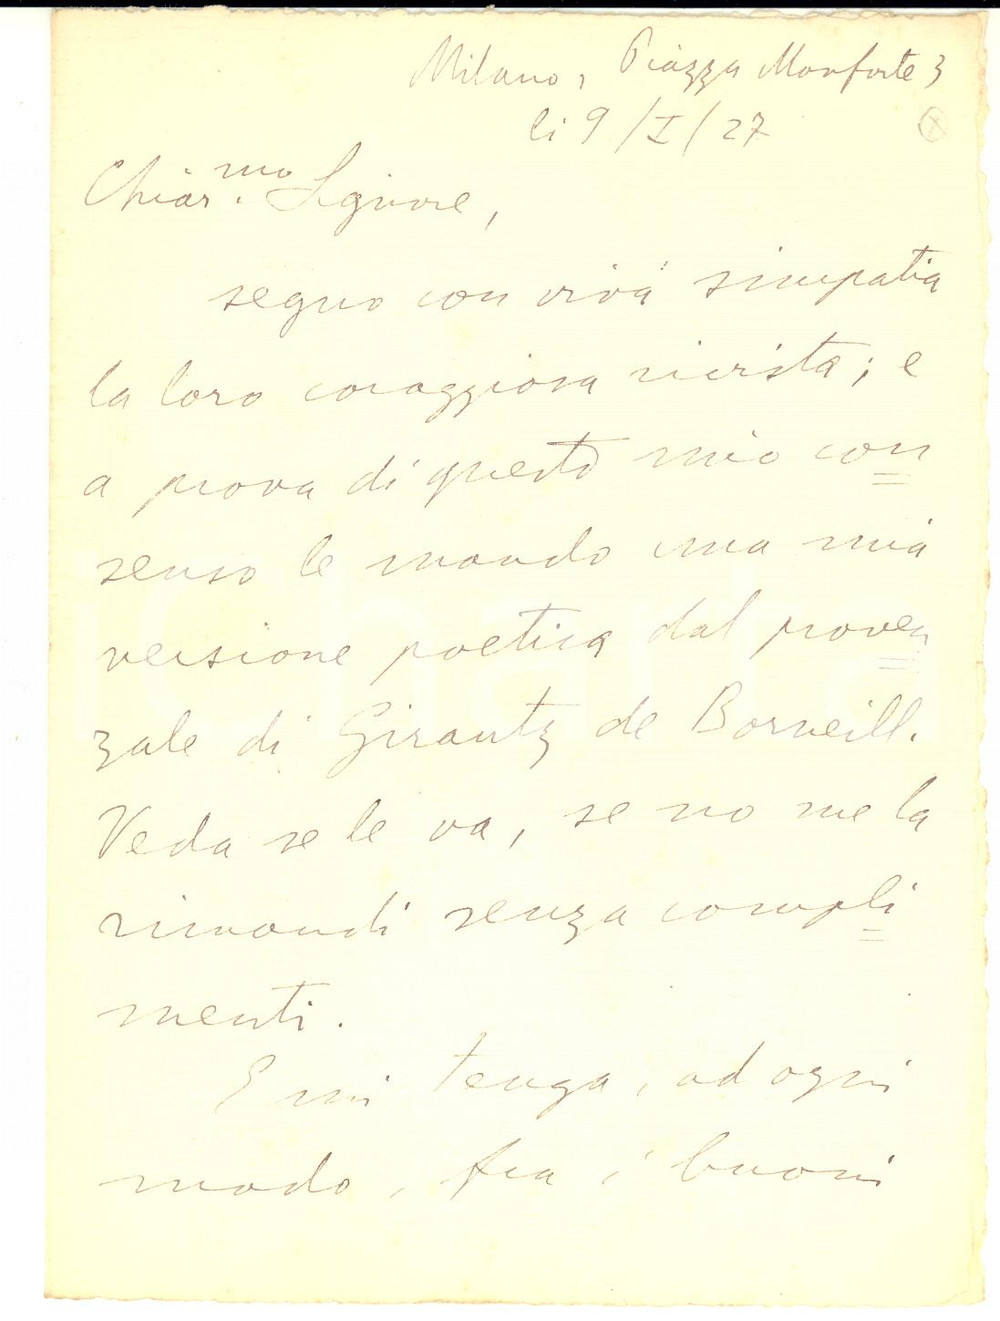 Milano, Piazza Monforte 3
li 9/I/27
Chiar.mo Signore,
seguo con viva simpatia
la loro coraggiosa rivista; e
a prova di questo mio con=
senso le mando una mia
versione poetica dal proven=
zale di Girautz de Borneill.
Veda se le va, se no me la
rimandi senza compli=
menti.
E mi tenga, ad ogni
modo, fra i buoni